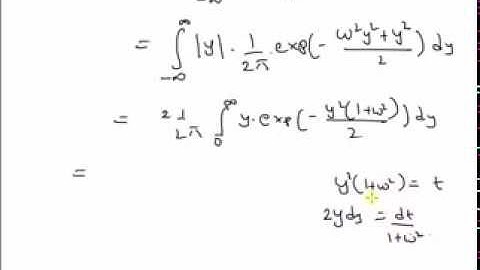 = ∫_{-∞}^{∞} |y| · 1/2π · exp(- (ω²y²+y²)/2) dy
= 2 1/2π ∫_0^∞ y · exp(- y²(1+ω²)/2) dy
=
y²(1+ω²) = t
2ydy = dt/1+ω²